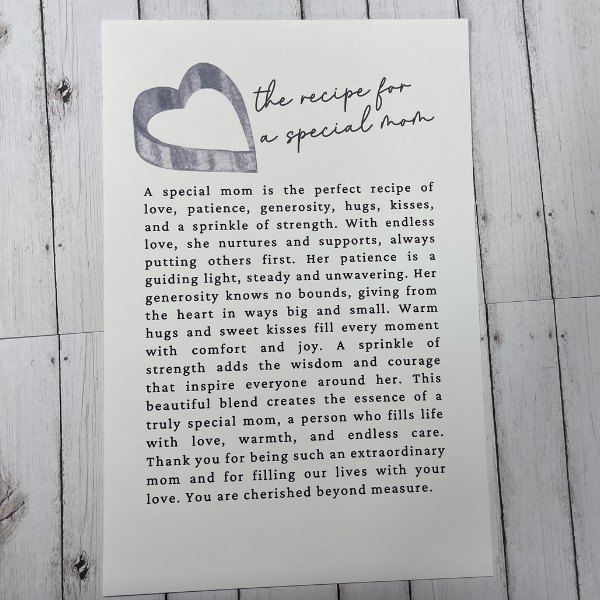 the recipe for
a special mom
A special mom is the perfect recipe of
love, patience, generosity, hugs, kisses,
and a sprinkle of strength. With endless
love, she nurtures and supports, always
putting others first. Her patience is a
guiding light, steady and unwavering. Her
generosity knows no bounds, giving from
the heart in ways big and small. Warm
hugs and sweet kisses fill every moment
with comfort and joy. A sprinkle of
strength adds the wisdom and courage
that inspire everyone around her. This
beautiful blend creates the essence of a
truly special mom, a person who fills life
with love, warmth, and endless care.
Thank you for being such an extraordinary
mom and for filling our lives with your
love. You are cherished beyond measure.